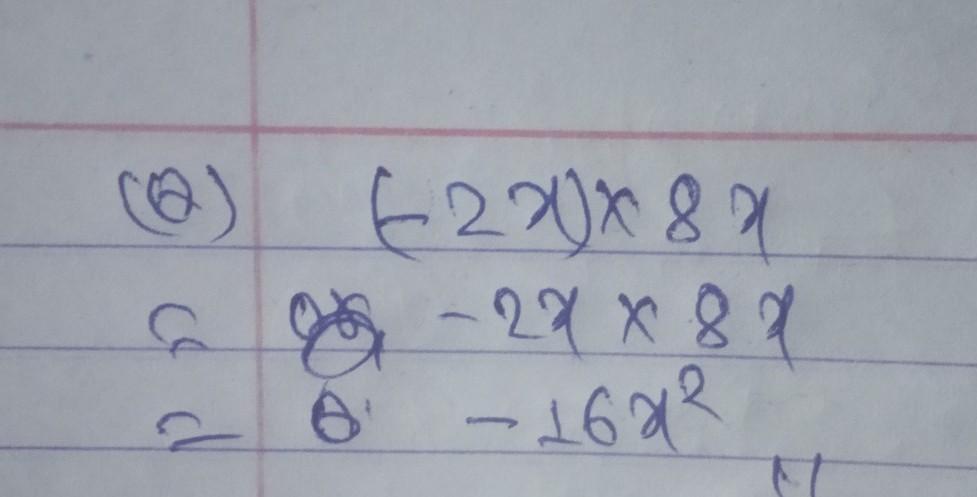 (θ) (-2x) × 8x
= -2x × 8x
= θ -16x²